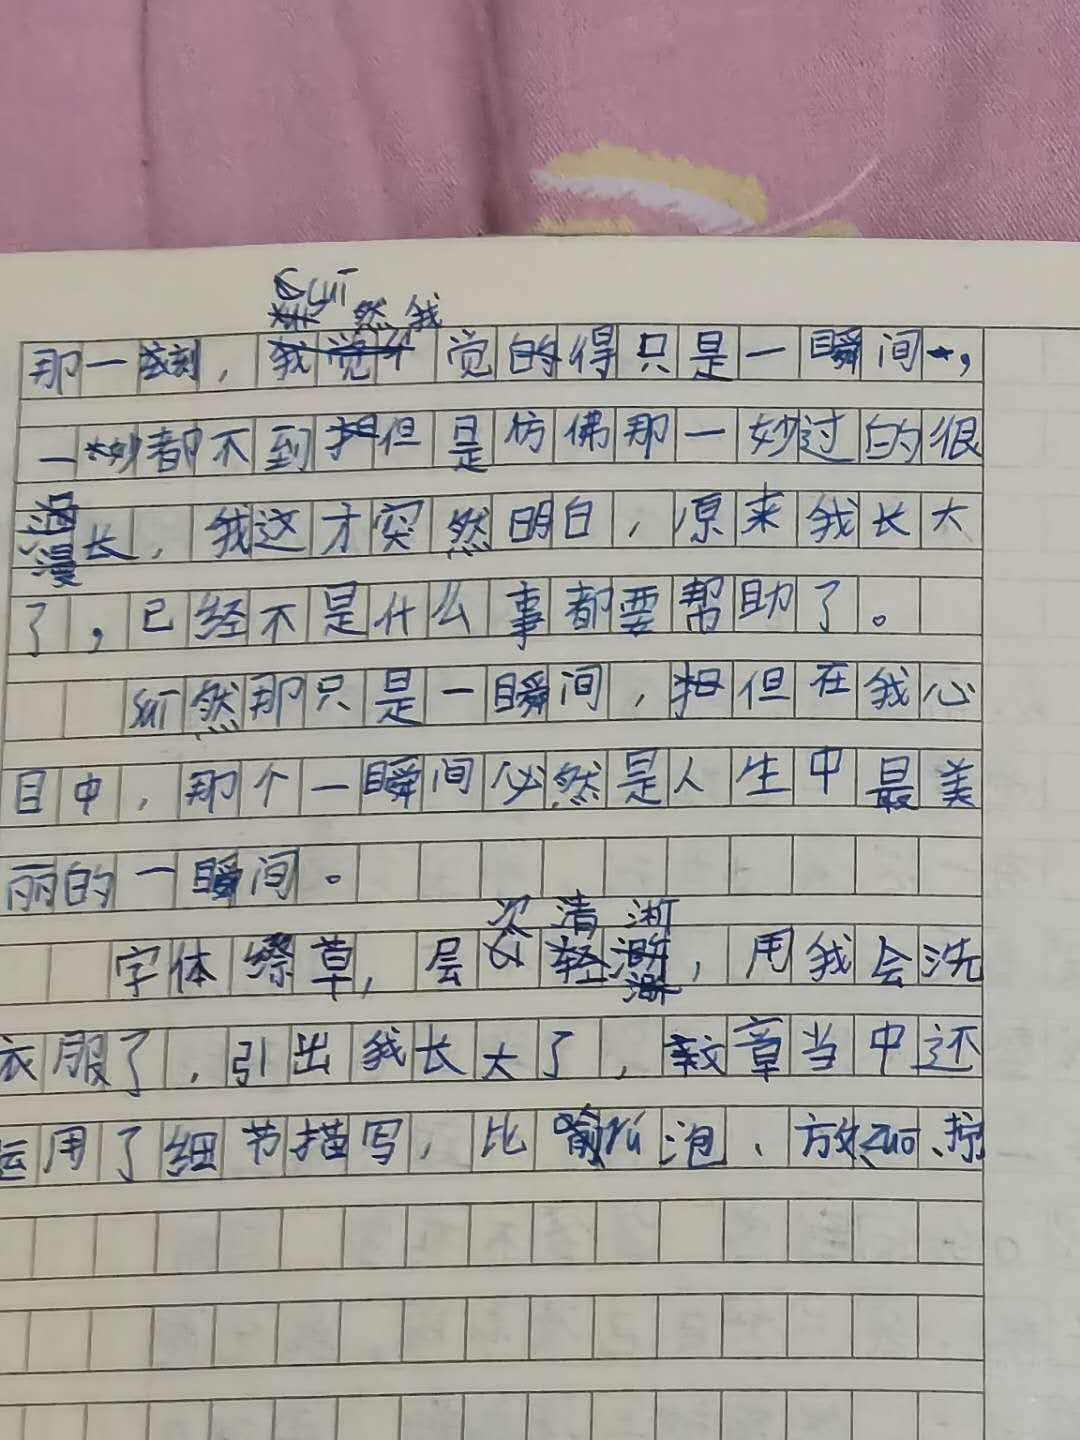 suī然我
那一刻，觉的得只是一瞬间，
一妙都不到但是仿佛那一妙过的很
漫长，我这才突然明白，原来我长大
了，已经不是什么事都要帮助了。
suī然那只是一瞬间，但在我心
目中，那个一瞬间必然是人生中最美
丽的一瞬间。
次清淅
字体缭草，层，用我会洗
衣服了，引出我长大了，文章当中还
运用了细节描写，比喻rú泡、放zuo、拧